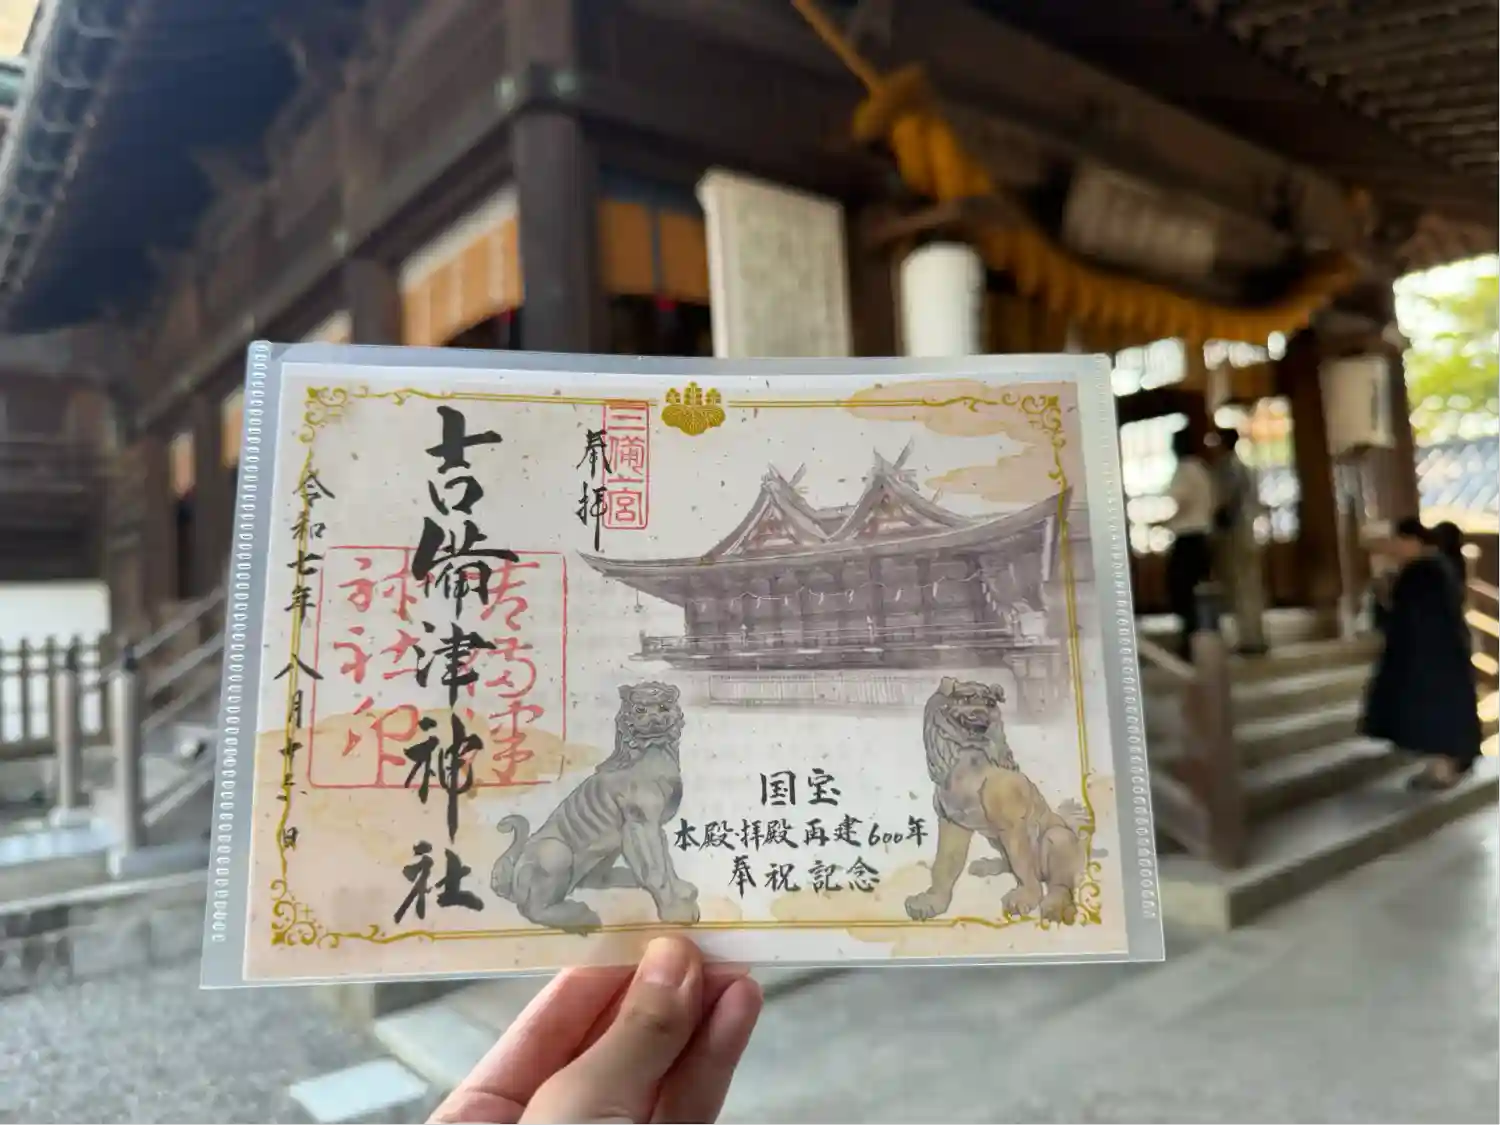 三備一宮
奉拝
吉備津神社
吉備津
神社印
令和七年八月十三日
国宝
本殿・拝殿再建600年
奉祝記念